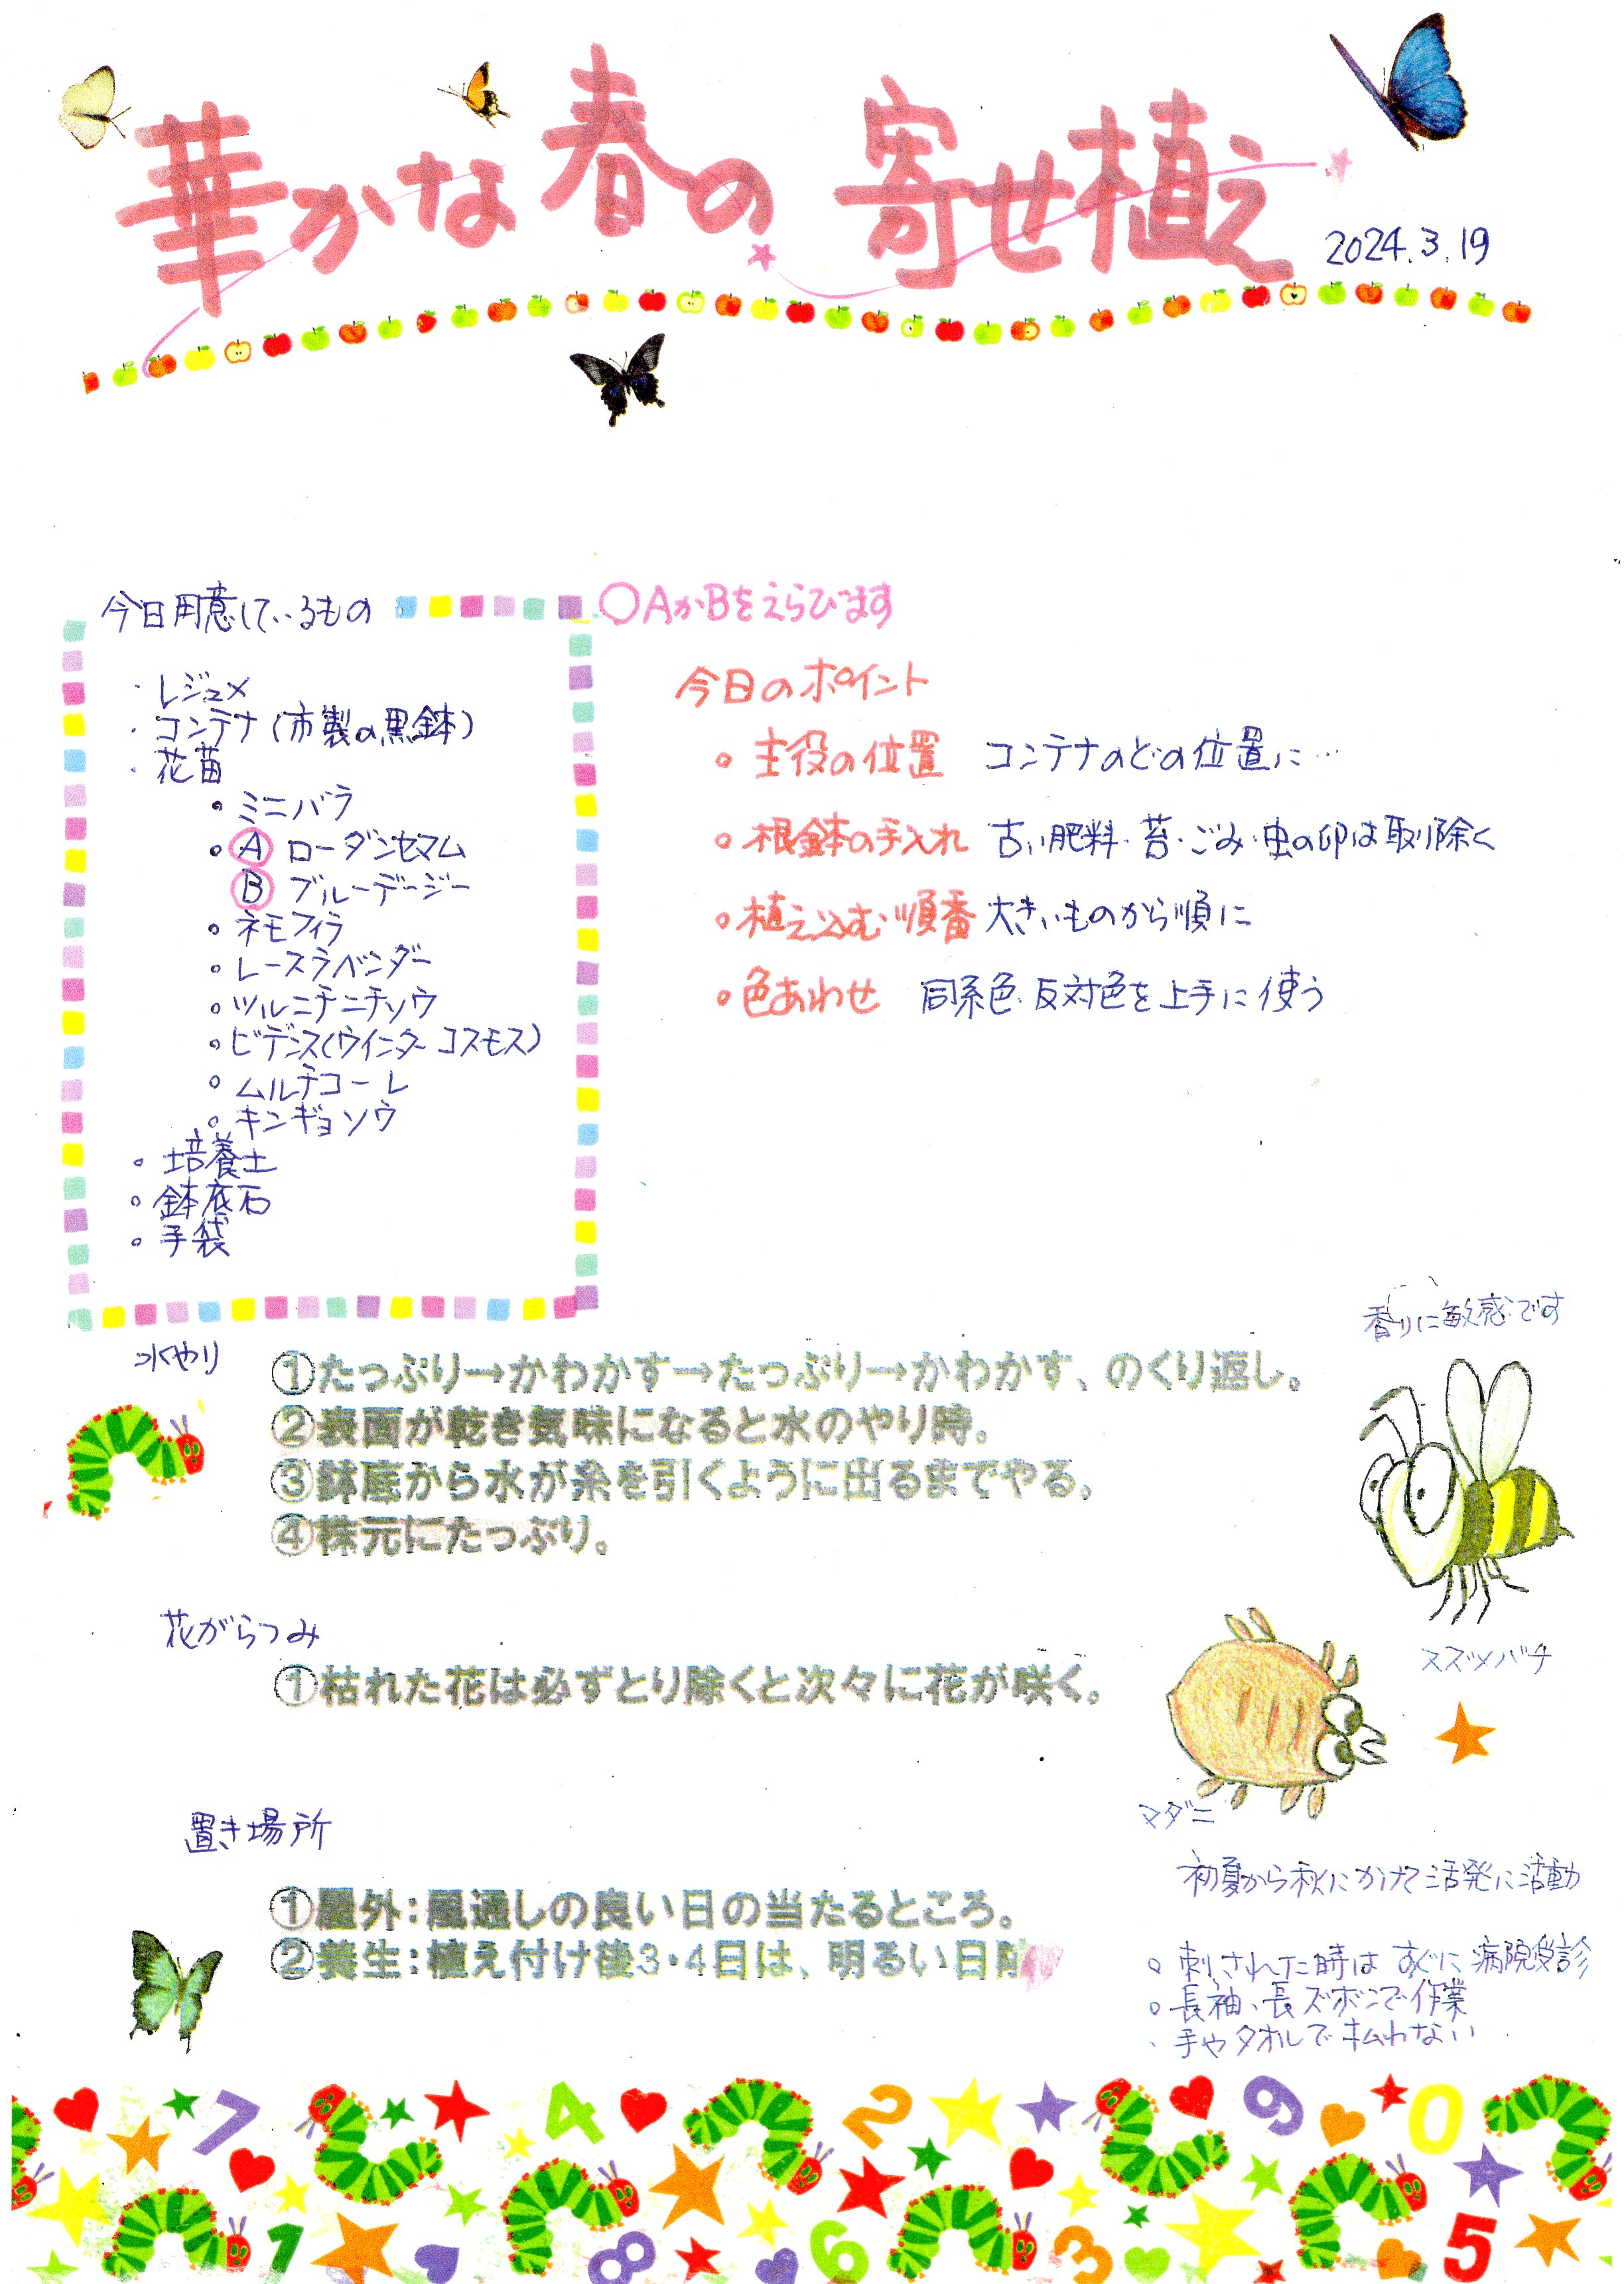 華かな春の寄せ植え
2024.3.19
今日用意しているもの
・レジュメ
・コンテナ(市製の黒鉢)
・花苗
・ミニバラ
・Ⓐ ローダンセマム
Ⓑ ブルーデージー
・ネモフィラ
・レースラベンダー
・ツルニチニチソウ
・ビデンス(ウインターコスモス)
・ムルチコーレ
・キンギョソウ
・培養土
・鉢底石
・手袋
○AかBをえらびます
今日のポイント
・主役の位置 コンテナのどの位置に…
・根鉢の手入れ 古い肥料・苔・ごみ・虫の卵は取り除く
・植え込む順番 大きいものから順に
・色あわせ 同系色・反対色を上手に使う
水やり
①たっぷり→かわかす→たっぷり→かわかす、のくり返し。
②表面が乾き気味になると水のやり時。
③鉢底から水が糸を引くように出るまでやる。
④株元にたっぷり。
花がらつみ
①枯れた花は必ずとり除くと次々に花が咲く。
置き場所
①屋外：風通しの良い日の当たるところ。
②養生：植え付け後3・4日は、明るい日
香りに敏感です
スズメバチ
マダニ
初夏から秋にかけて活発に活動
○刺された時は すぐに病院受診
○長袖、長ズボンで作業
・手やタオルで払わない
7 4 2 9 0
1 8 6 3 5